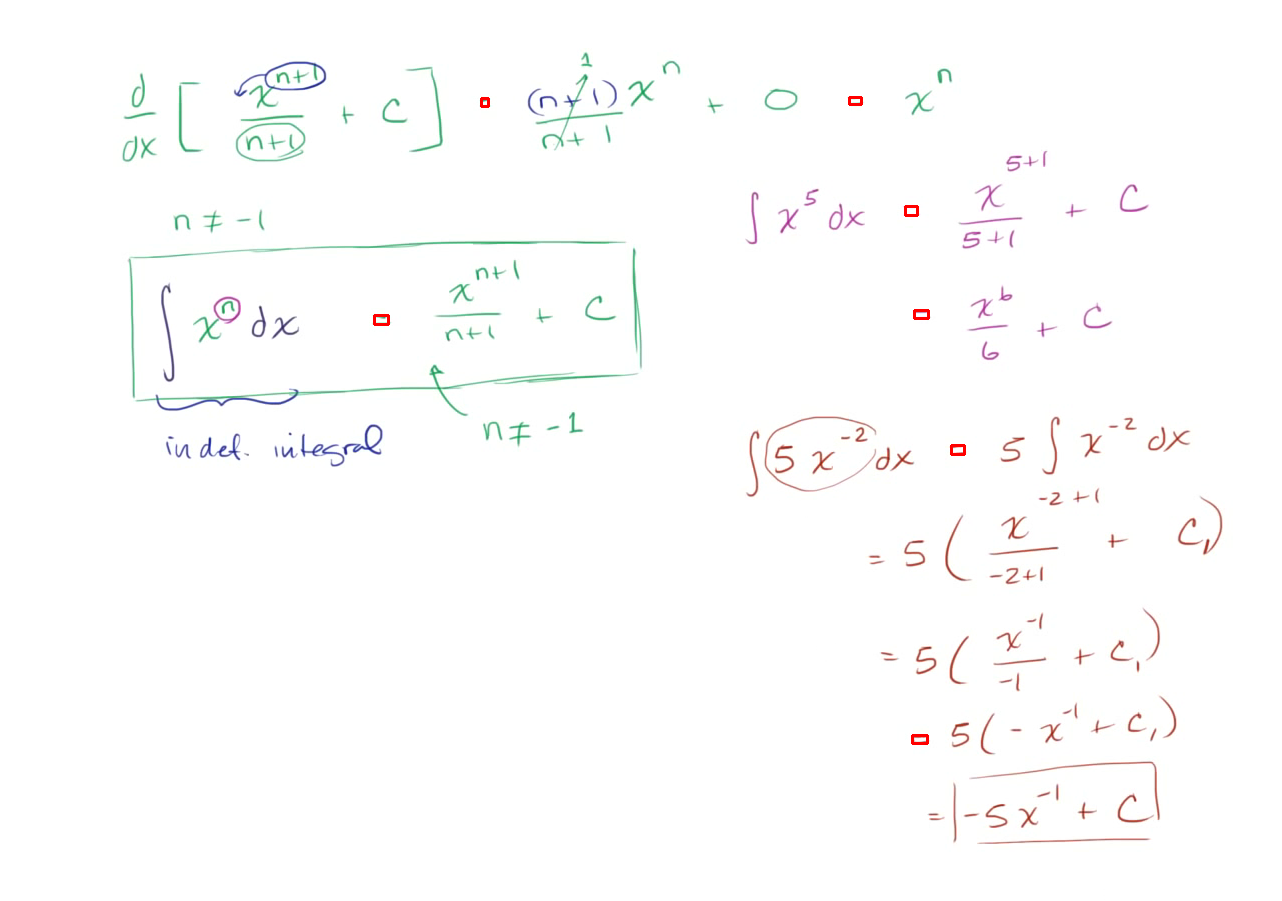 d/dx [ x^(n+1)/(n+1) + C ] (n+1)x^n/(n+1) 1 + 0 x^n
n ≠ -1
∫ x^n dx x^(n+1)/(n+1) + C
n ≠ -1
indef. integral
∫ x^5 dx x^(5+1)/(5+1) + C
x^6/6 + C
∫ 5x^(-2) dx 5 ∫ x^(-2) dx
= 5 ( x^(-2+1)/(-2+1) + C₁ )
= 5 ( x^(-1)/(-1) + C₁ )
5 ( -x^(-1) + C₁ )
= -5x^(-1) + C